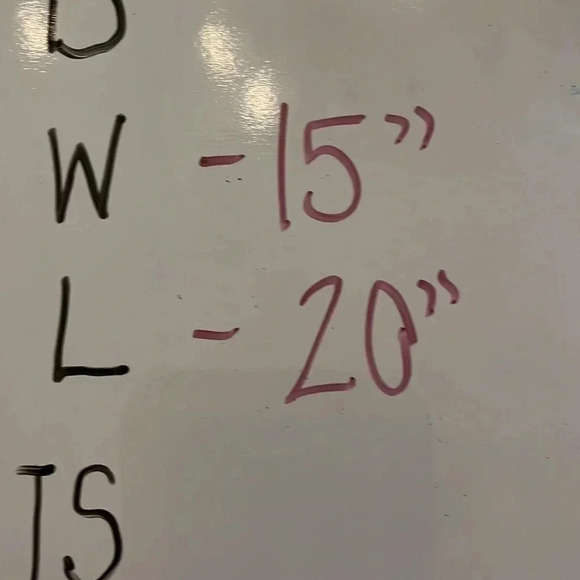 W - 15”
L - 20”
TS